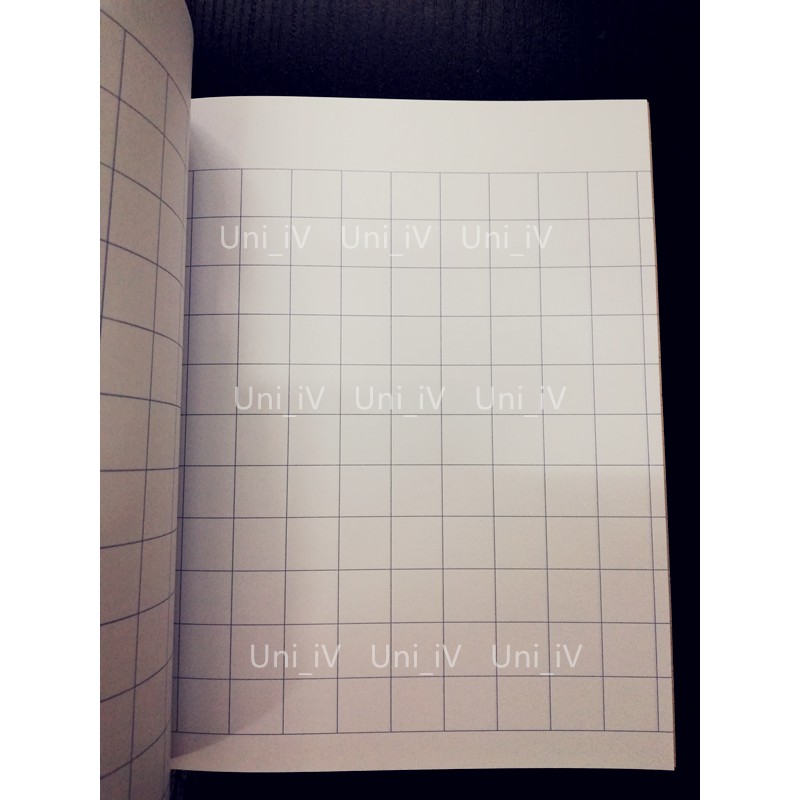 Uni_iV Uni_iV Uni_iV
Uni_iV Uni_iV Uni_iV
Uni_iV Uni_iV Uni_iV